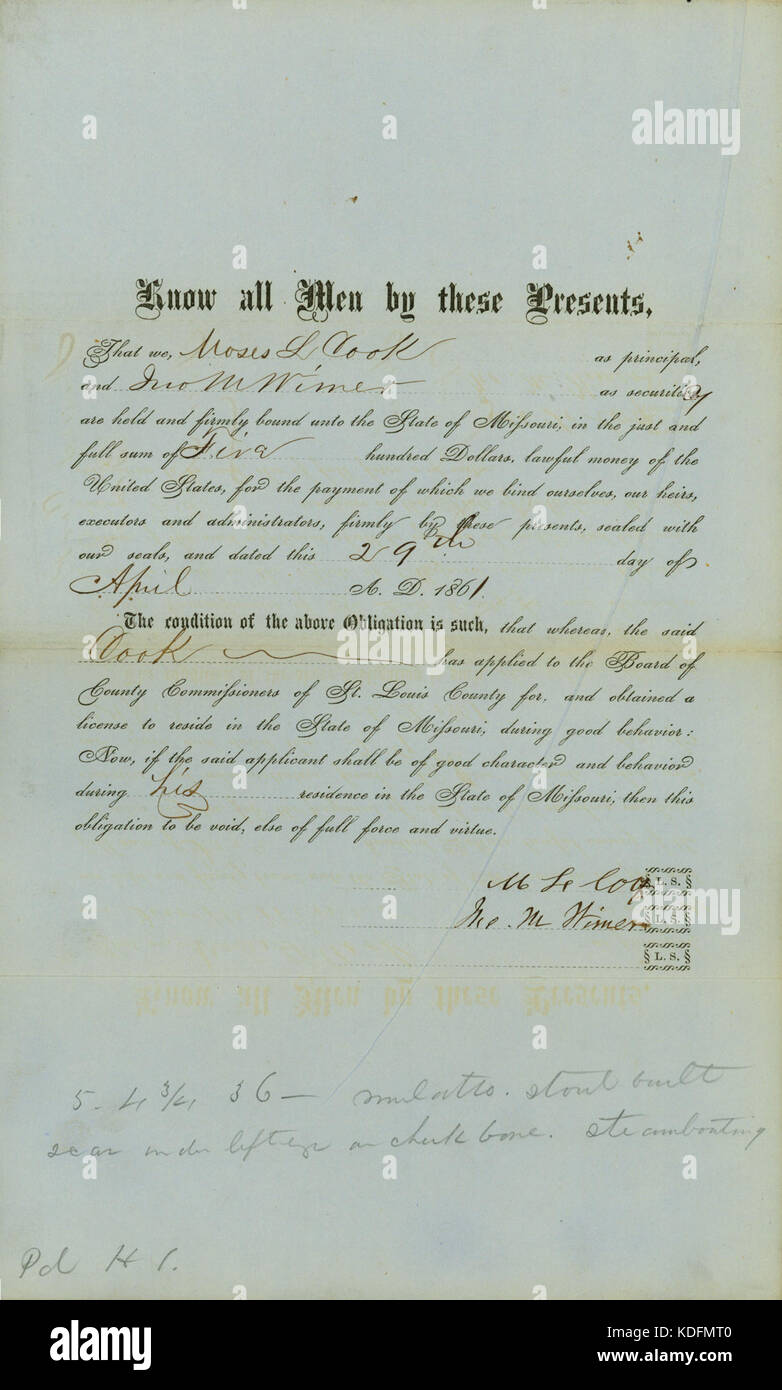 Know all Men by these Presents,
That we, Moses L Cook as principal,
and Jno M Wimer as security
are held and firmly bound unto the State of Missouri, in the just and
full sum of Five hundred Dollars, lawful money of the
United States, for the payment of which we bind ourselves, our heirs,
executors and administrators, firmly by these presents, sealed with
our seals, and dated this 29th day of
April A. D. 1861.
The condition of the above Obligation is such, that whereas, the said
Cook has applied to the Board of
County Commissioners of St. Louis County for, and obtained a
license to reside in the State of Missouri, during good behavior:
Now, if the said applicant shall be of good character and behavior
during his residence in the State of Missouri, then this
obligation to be void, else of full force and virtue.
M L L. S.
Jno. M Wimer L. S.
L. S.
5-4 3/4 36 — mulatto. stout built
scar under left eye on cheek bone. steamboating
Pd H C.
alamy stock photo
KDFMT0
www.alamy.com